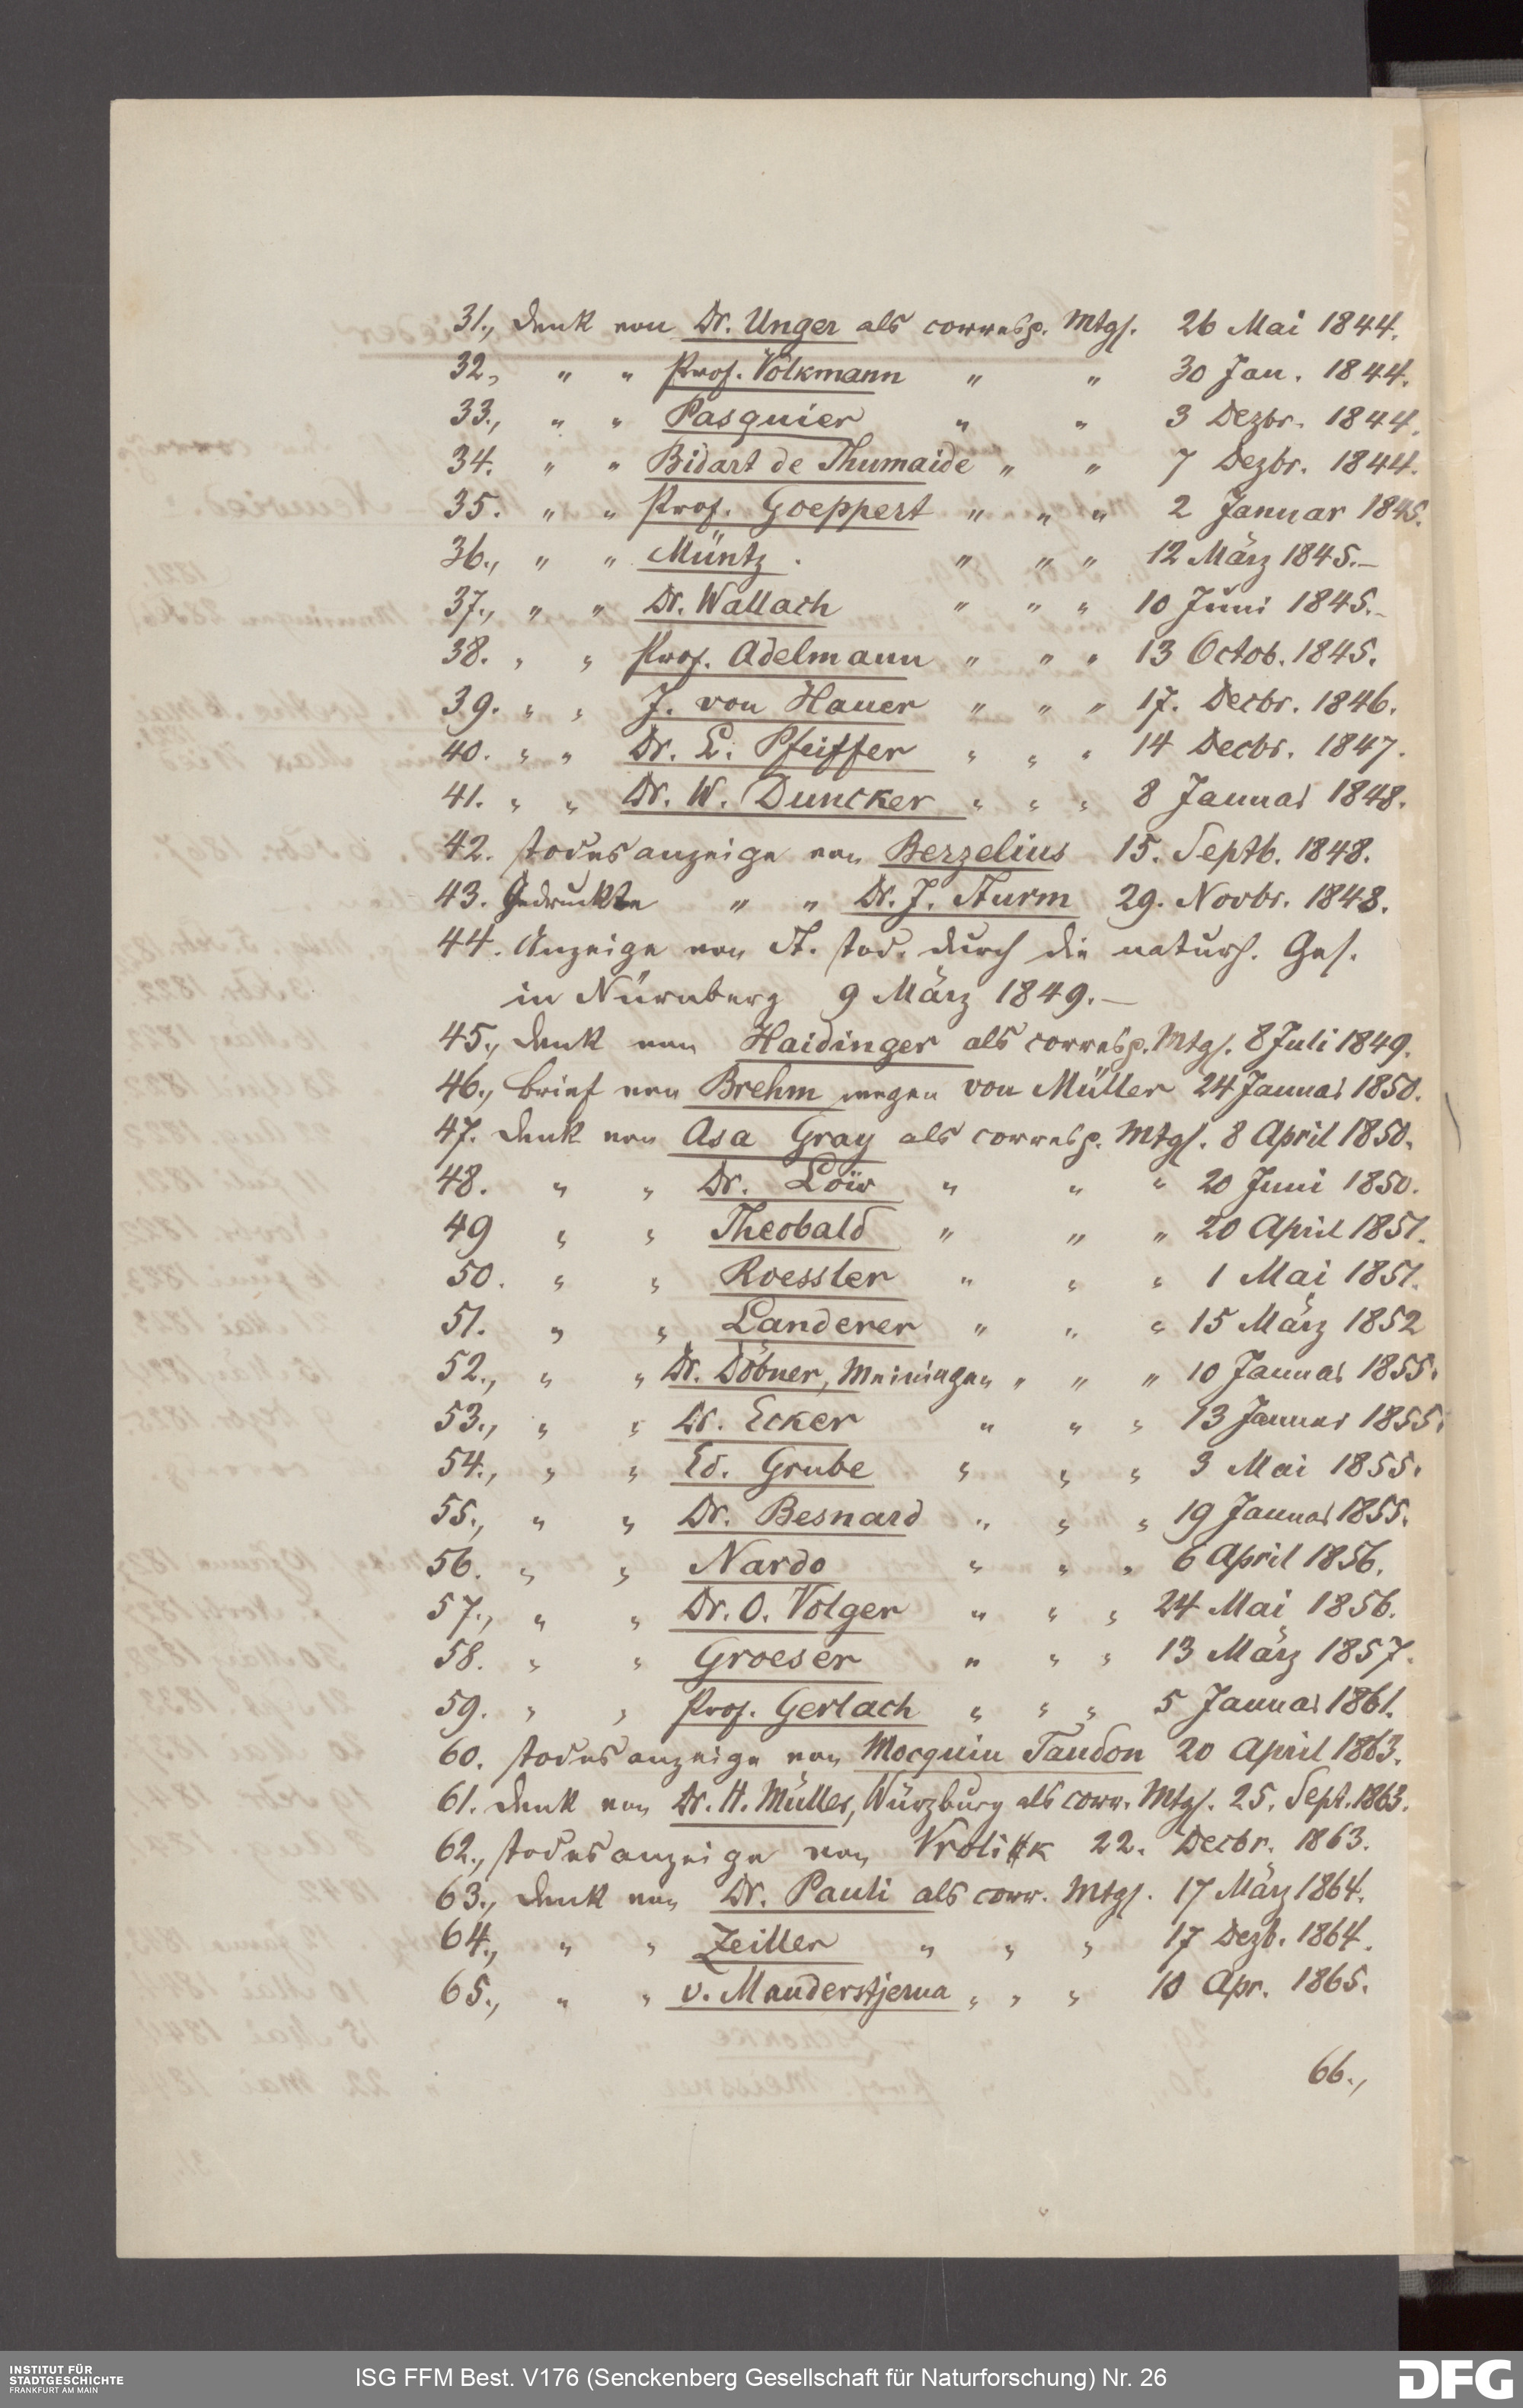 31., Dank von Dr. Unger als corresp. Mtgl. 26 Mai 1844.
32., " " Prof. Volkmann " " 30 Jan. 1844.
33., " " Pasquier " " 3 Dezbr. 1844.
34. " " Bidart de Thumaide " " 7 Dezbr. 1844.
35. " " Prof. Goeppert " " " 2 Januar 1845.
36., " " Müntz . " " " 12 März 1845.–
37., " " Dr. Wallach " " " 10 Juni 1845.–
38. " " Prof. Adelmann " " " 13 Octob. 1845.
39. " " J. von Hauer " " " 17. Decbr. 1846.
40. " " Dr. L. Pfeiffer " " " 14 Decbr. 1847.
41. " " Dr. W. Duncker " " " 8 Januar 1848.
42. Todesanzeige von Berzelius 15. Septb. 1848.
43. Gedruckte " " Dr. J. Sturm 29. Novbr. 1848.
44. Anzeige von St. Tod. durch die naturh. Ges.
in Nürnberg 9 März 1849.–
45., Dank von Haidinger als corresp. Mtgl. 8 Juli 1849.
46., Brief von Brehm wegen von Müller 24 Januar 1850.
47. Dank von Asa Gray als corresp. Mtgl. 8 April 1850.
48. " " Dr. Löw " " " 20 Juni 1850.
49 " " Theobald " " " 20 April 1851.
50. " " Roessler " " " 1 Mai 1851.
51. " " Landerer " " " 15 März 1852
52., " " Dr. Döbner, Meiningen " " " 10 Januar 1855.
53., " " Dr. Ecker " " " 13 Januar 1855.
54., " " Ed. Grube " " " 3 Mai 1855.
55., " " Dr. Besnard " " " 19 Januar 1855.
56. " " Nardo " " " 6 April 1856.
57., " " Dr. O. Volger " " " 24 Mai 1856.
58. " " Groeser " " " 13 März 1857.
59. " " Prof. Gerlach " " " 5 Januar 1861.
60. Todesanzeige von Mocquin Tandon 20 April 1863.
61. Dank von Dr. H. Müller, Würzburg als corr. Mtgl. 25. Sept. 1863.
62., Todesanzeige von Vrolik 22. Decbr. 1863.
63., Dank von Dr. Pauli als corr. Mtgl. 17 März 1864.
64., " " Zeiller " " " 17 Dezb. 1864.
65., " " v. Manderstjerna " " " 10 Apr. 1865.
66.,
INSTITUT FÜR
STADTGESCHICHTE
FRANKFURT AM MAIN
ISG FFM Best. V176 (Senckenberg Gesellschaft für Naturforschung) Nr. 26
DFG